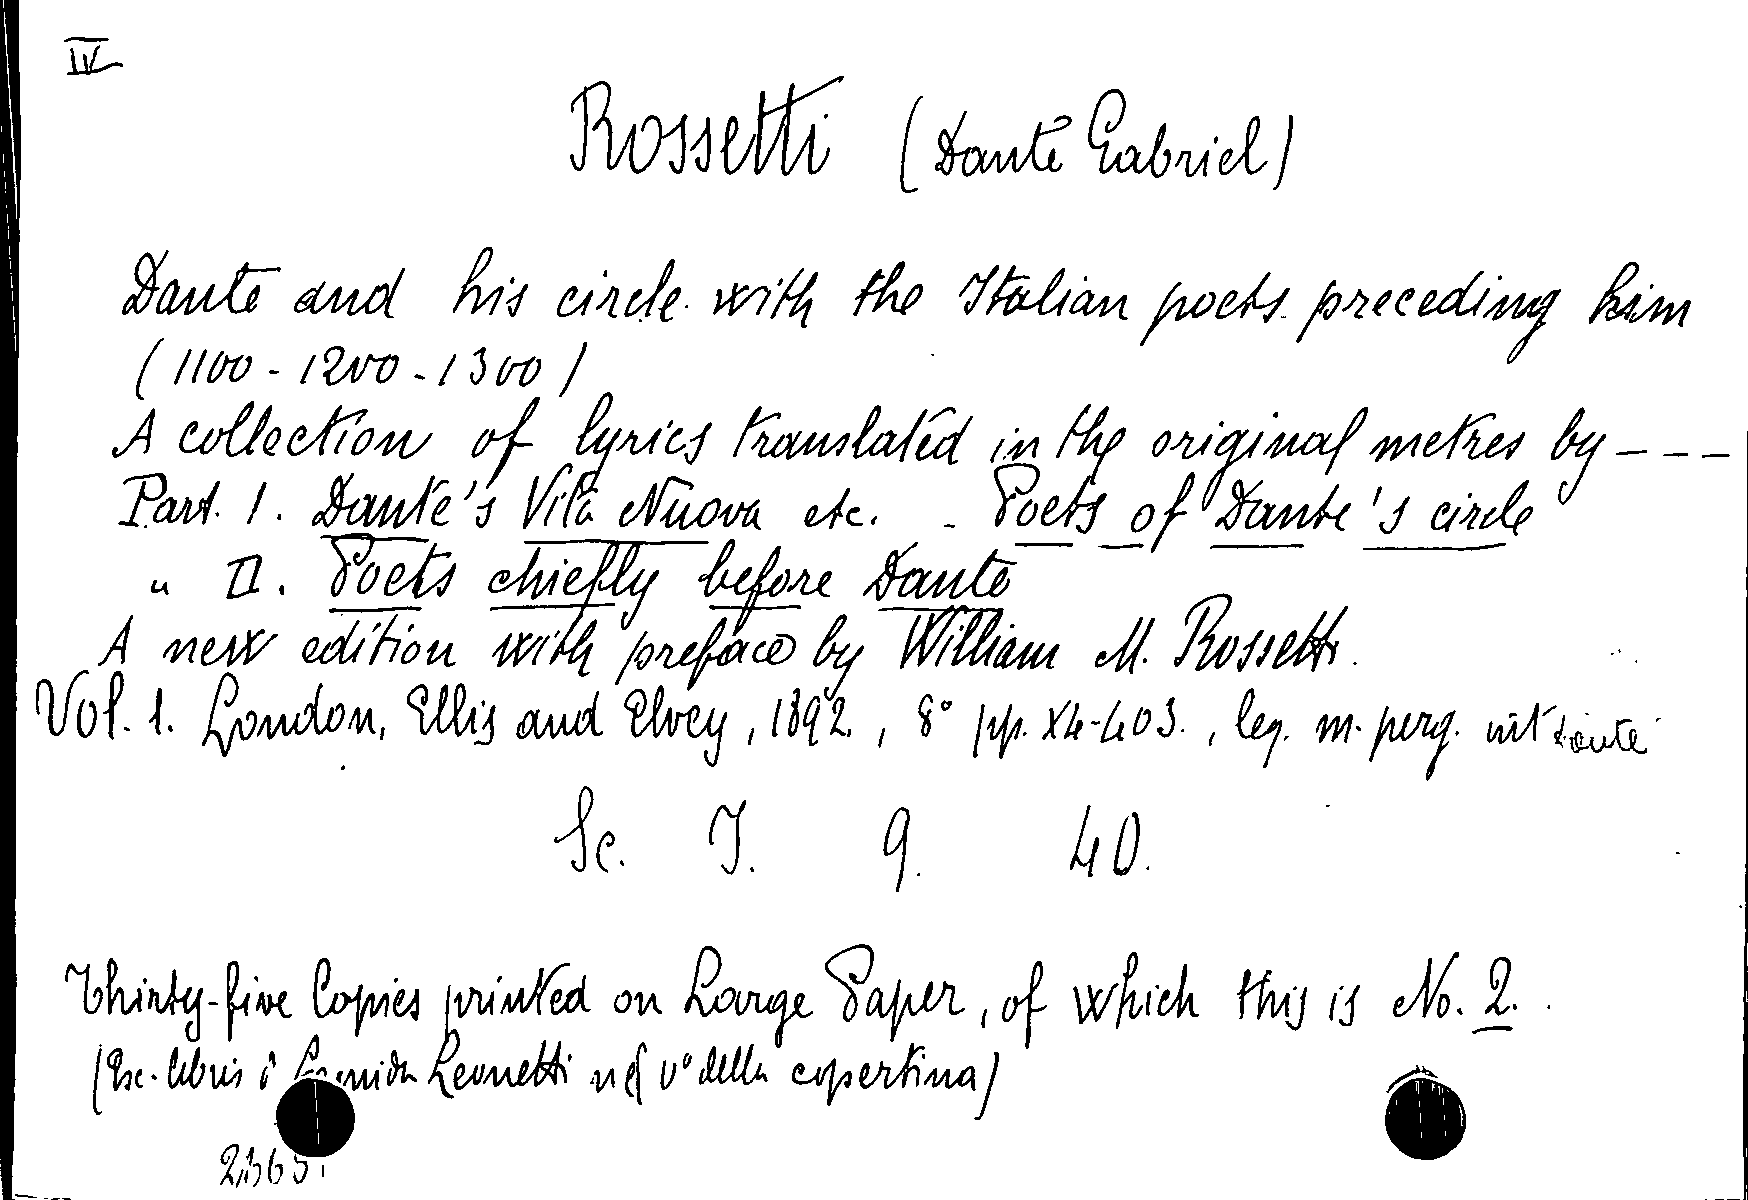 IV
Rossetti (Dante Gabriel)
Dante and his circle with the Italian poets preceding him
(1100-1200-1300)
A collection of lyrics translated in the original metres by ---
Part. I. Dante's Vita Nuova etc. - Poets of Dante's circle
" II. Poets chiefly before Dante
A new edition with preface by William M. Rossetti.
Vol. 1. London, Ellis and Elvey, 1892, 8° pp. XL-403., leg. m. perg.
Sc. I. 9. 40.
Thirty-five Copies printed on Large Paper, of which this is No. 2.
(Ex-libris Leonetti nel v° della copertina)